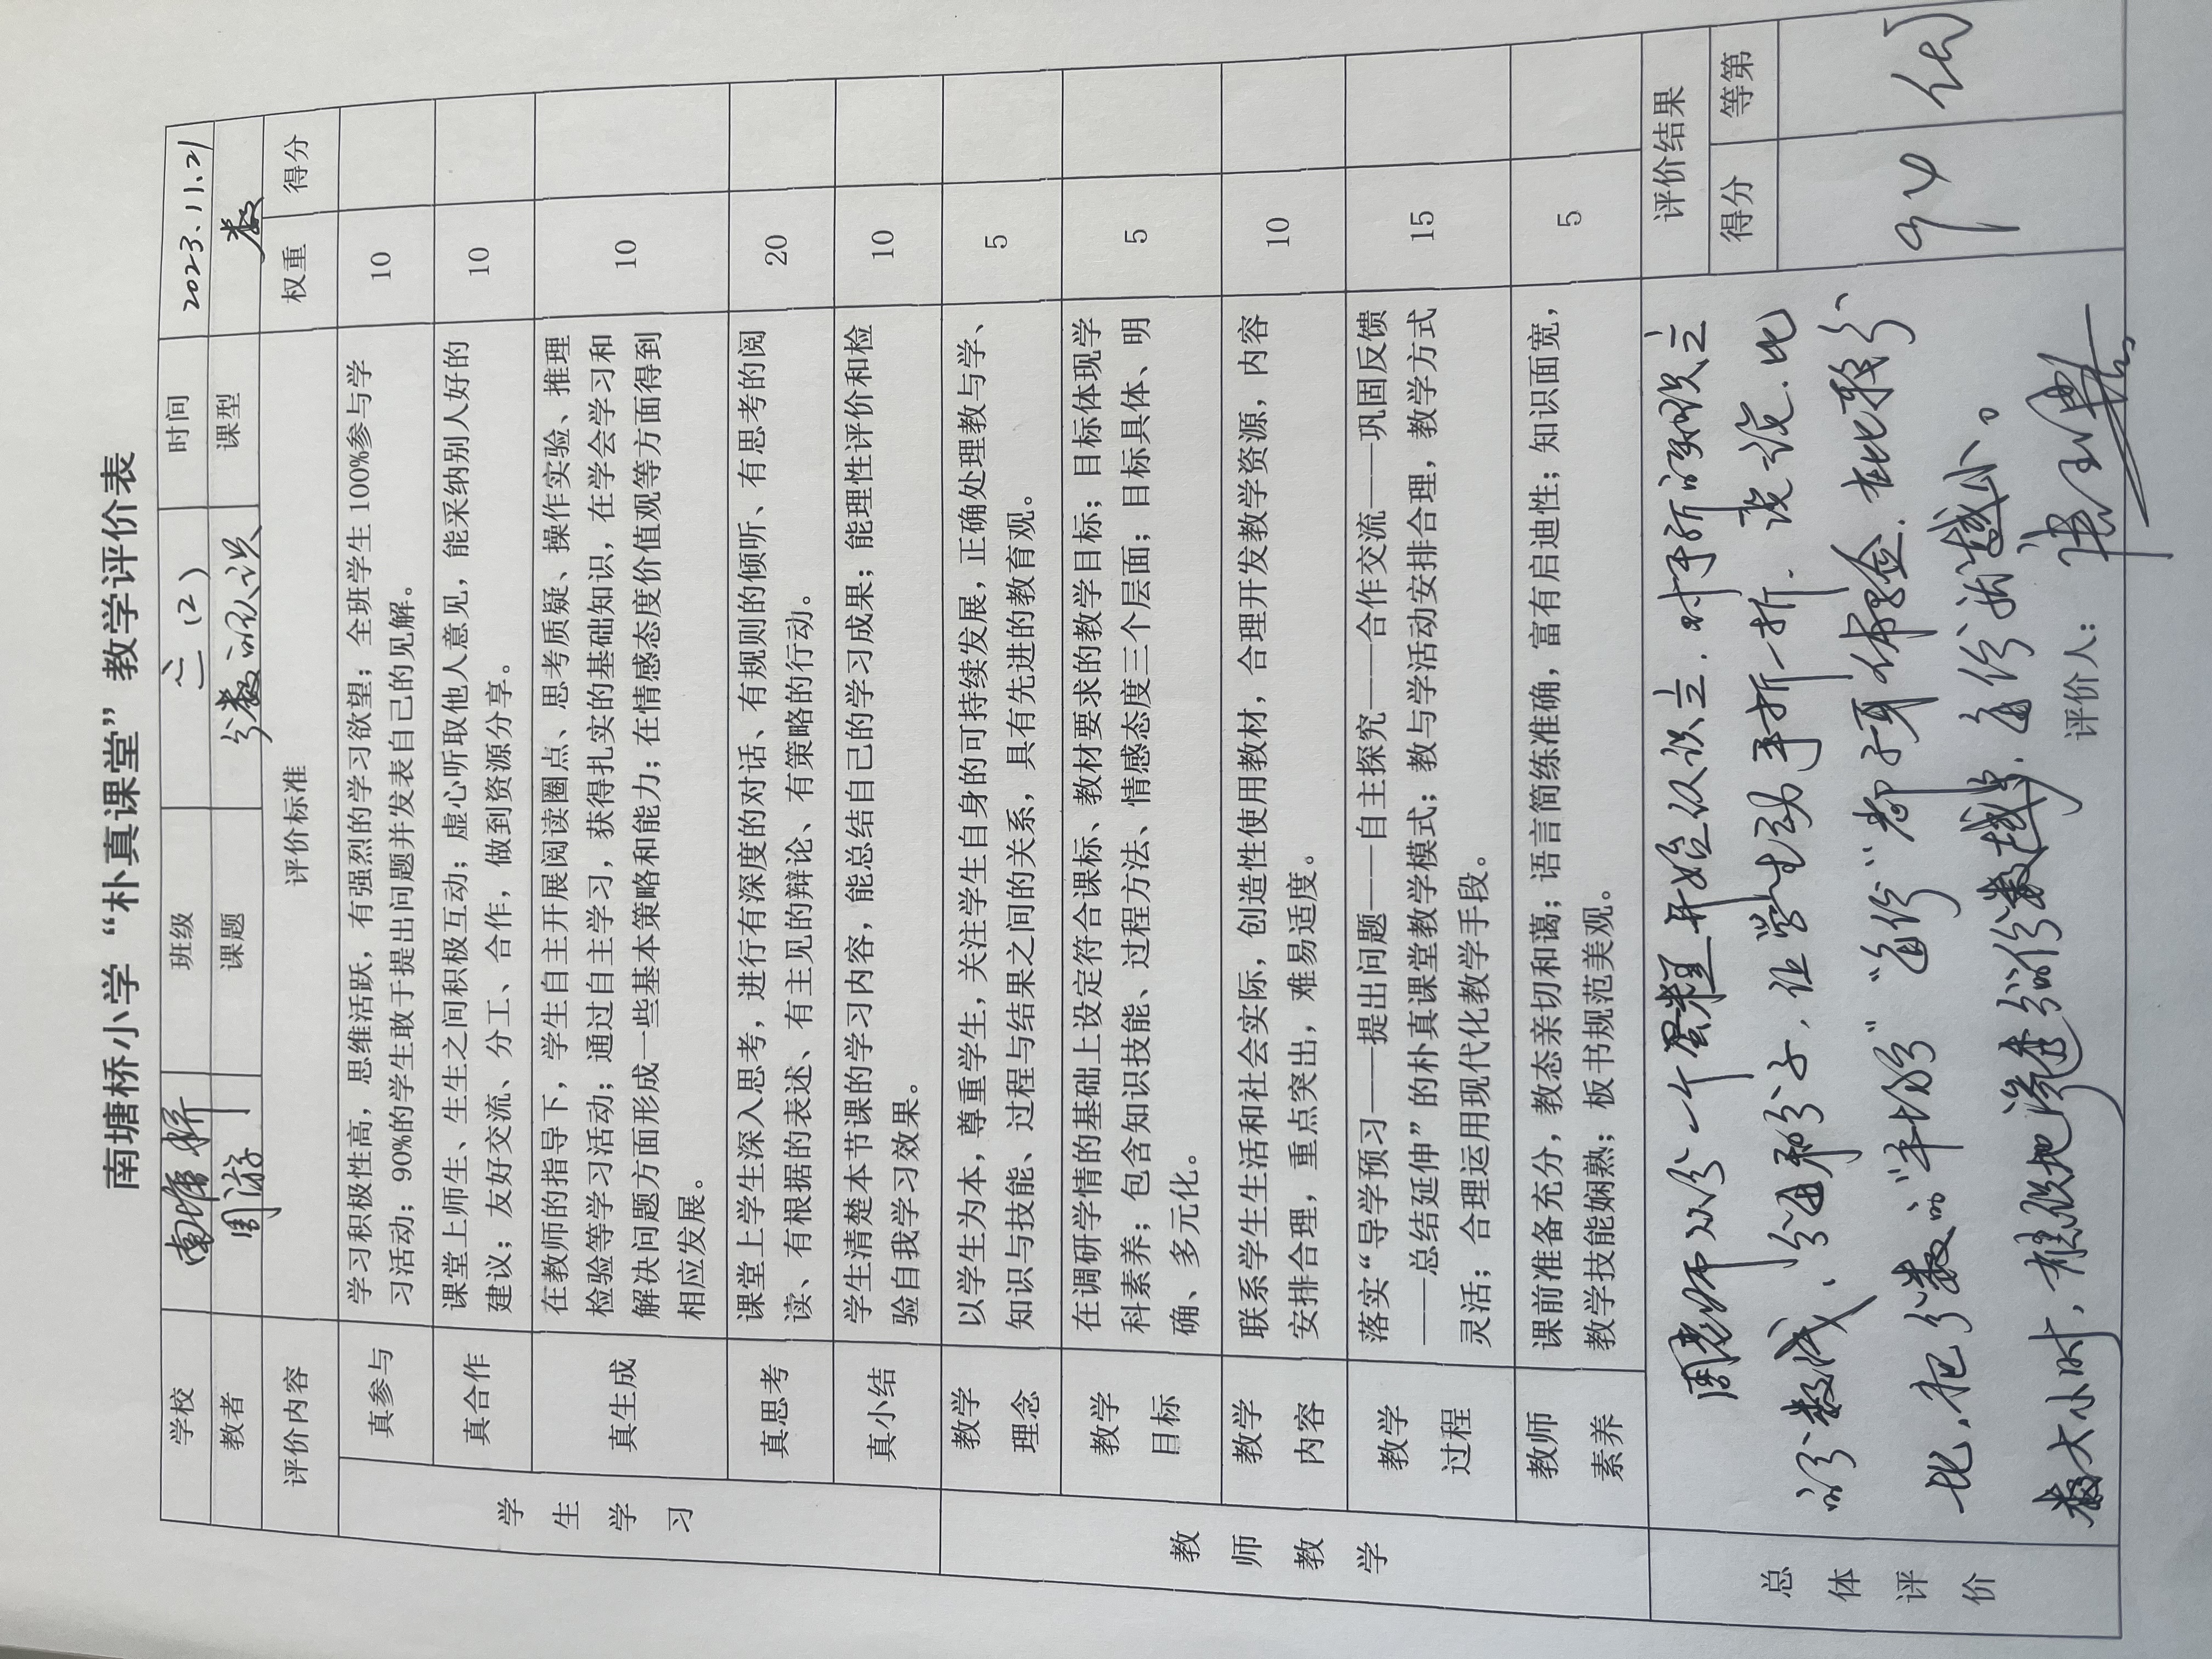 南塘桥小学“朴真课堂”教学评价表
学校 南塘桥 班级 三(2) 时间 2023.11.21
教者 周游 课题 分数的认识 课型 数
评价内容 评价标准 权重 得分
学生学习
真参与 学习积极性高，思维活跃，有强烈的学习欲望；全班学生100%参与学 10
习活动；90%的学生敢于提出问题并发表自己的见解。
真合作 课堂上师生、生生之间积极互动；虚心听取他人意见，能采纳别人好的 10
建议；友好交流、分工、合作，做到资源分享。
真生成 在教师的指导下，学生自主开展阅读圈点、思考质疑、操作实验、推理 10
检验等学习活动；通过自主学习，获得扎实的基础知识，在学会学习和
解决问题方面形成一些基本策略和能力；在情感态度价值观等方面得到
相应发展。
真思考 课堂上学生深入思考，进行有深度的对话、有规则的倾听、有思考的阅 20
读、有根据的表述、有主见的辩论、有策略的行动。
真小结 学生清楚本节课的学习内容，能总结自己的学习成果；能理性评价和检 10
验自我学习效果。
教师教学
教学理念 以学生为本，尊重学生，关注学生自身的可持续发展，正确处理教与学、 5
知识与技能、过程与结果之间的关系，具有先进的教育观。
教学目标 在调研学情的基础上设定符合课标、教材要求的教学目标；目标体现学 5
科素养；包含知识技能、过程方法、情感态度三个层面；目标具体、明
确、多元化。
教学内容 联系学生生活和社会实际，创造性使用教材，合理开发教学资源，内容 10
安排合理，重点突出，难易适度。
教学过程 落实“导学预习——提出问题——自主探究——合作交流——巩固反馈 15
——总结延伸”的朴真课堂教学模式；教与学活动安排合理，教学方式
灵活；合理运用现代化教学手段。
教师素养 课前准备充分，教态亲切和蔼；语言简练准确，富有启迪性；知识面宽， 5
教学技能娴熟；板书规范美观。
总体评价
评价结果
得分 等第
94 优
周老师从分一个蛋糕开始认识，对于所认识
的分数线、分母和分子，让学生动手折一折，说一说，比一
比，把分数的“平均分”“每份”都充分体验，在比较分
数大小时，很好地渗透分的份数越多，每份就越小。
评价人：